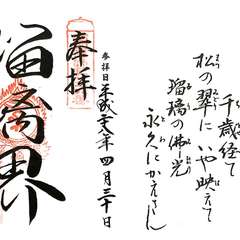 千歳経て
松の翠に いや映えて
瑠璃の佛光
永久に
参拝日 平成二八年 四月三十日
奉拝
瑠璃界